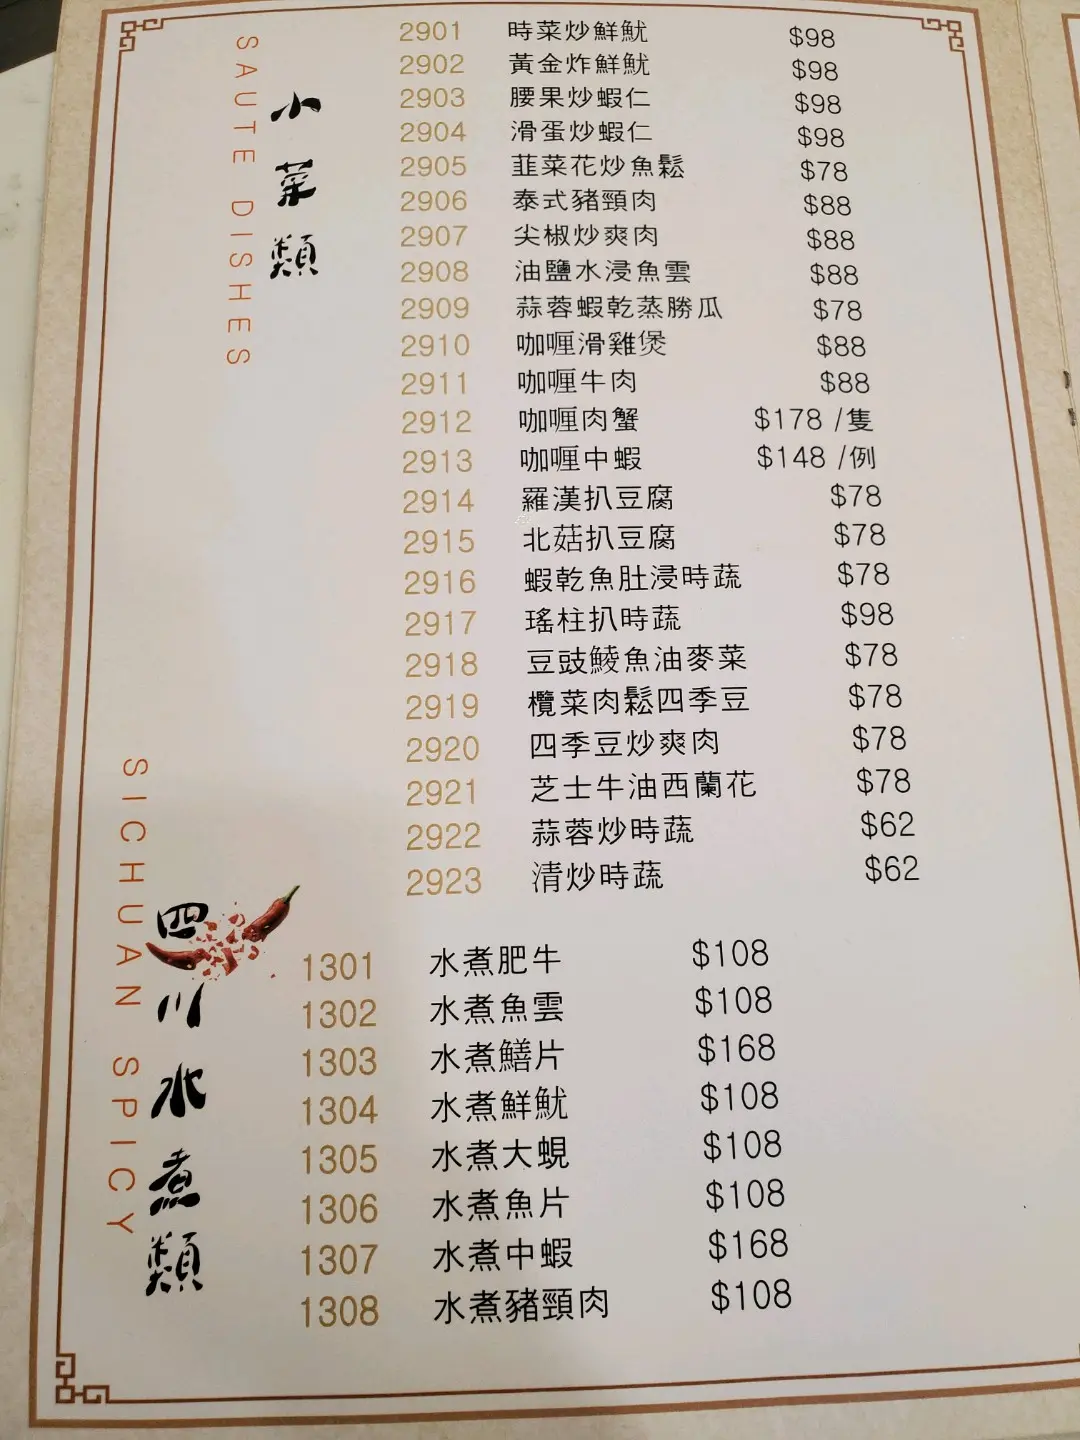 小菜類
SAUTE DISHES
2901 時菜炒鮮魷 $98
2902 黃金炸鮮魷 $98
2903 腰果炒蝦仁 $98
2904 滑蛋炒蝦仁 $98
2905 韮菜花炒魚鬆 $78
2906 泰式豬頸肉 $88
2907 尖椒炒爽肉 $88
2908 油鹽水浸魚雲 $88
2909 蒜蓉蝦乾蒸勝瓜 $78
2910 咖喱滑雞煲 $88
2911 咖喱牛肉 $88
2912 咖喱肉蟹 $178 /隻
2913 咖喱中蝦 $148 /例
2914 羅漢扒豆腐 $78
2915 北菇扒豆腐 $78
2916 蝦乾魚肚浸時蔬 $78
2917 瑤柱扒時蔬 $98
2918 豆豉鯪魚油麥菜 $78
2919 欖菜肉鬆四季豆 $78
2920 四季豆炒爽肉 $78
2921 芝士牛油西蘭花 $78
2922 蒜蓉炒時蔬 $62
2923 清炒時蔬 $62
四川水煮類
SICHUAN SPICY
1301 水煮肥牛 $108
1302 水煮魚雲 $108
1303 水煮鱔片 $168
1304 水煮鮮魷 $108
1305 水煮大蜆 $108
1306 水煮魚片 $108
1307 水煮中蝦 $168
1308 水煮豬頸肉 $108